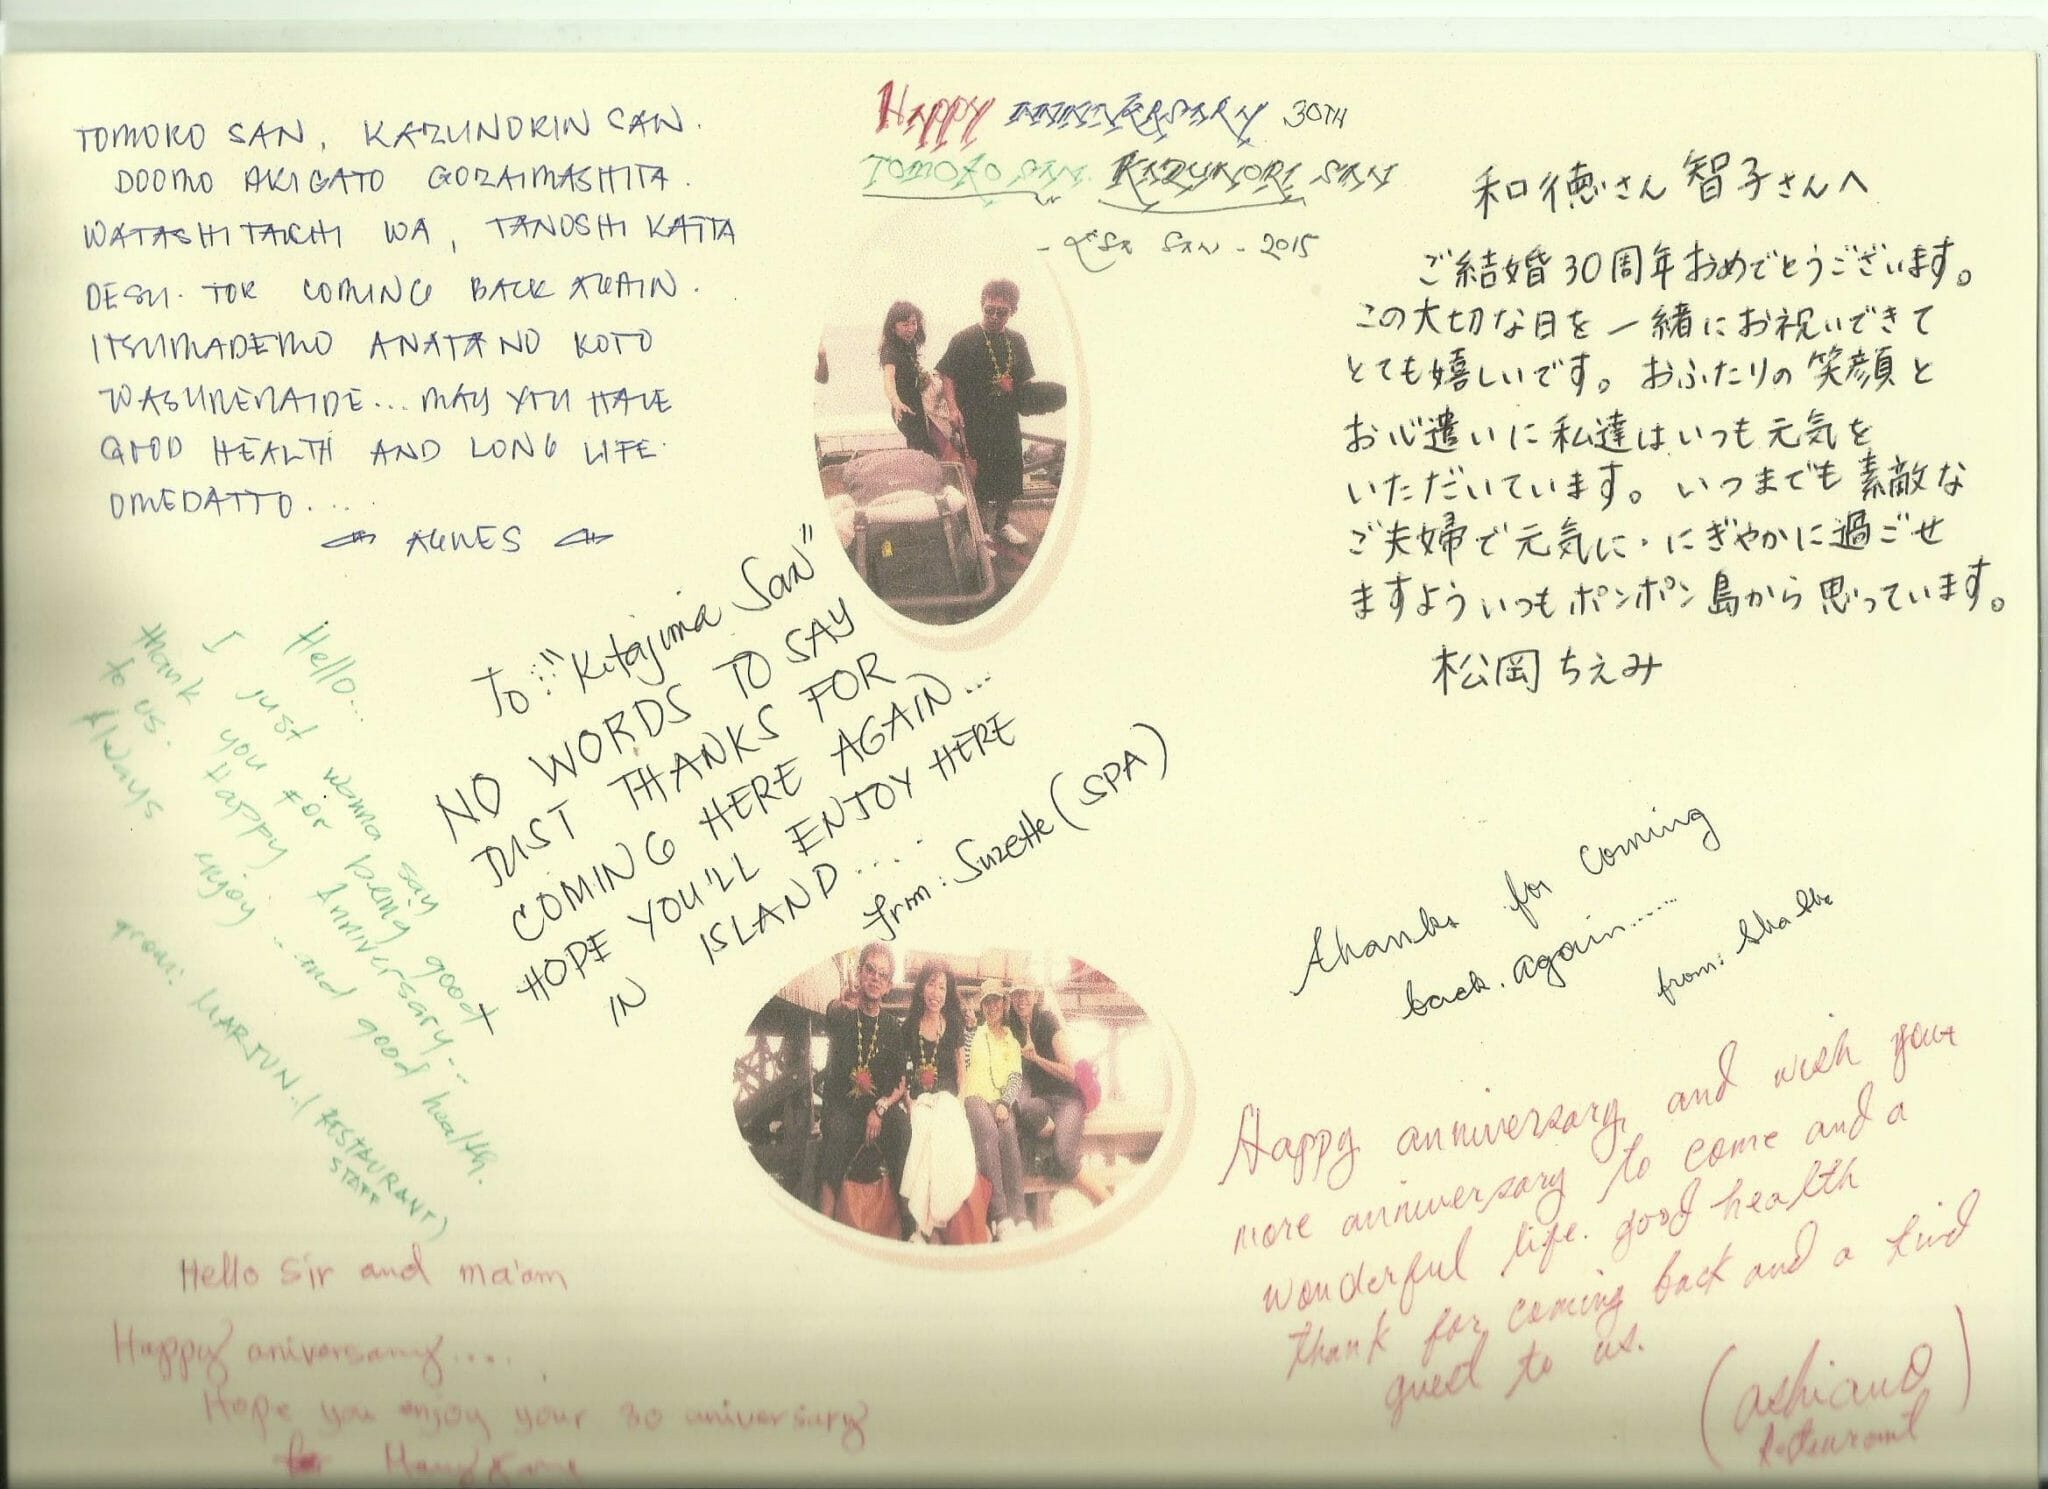 TOMOKO SAN, KAZUNORIN SAN.
DOOMO ARIGATO GOZAIMASHITA.
WATASHITACHI WA, TANOSHIKATTA
DESU. FOR COMING BACK AGAIN.
ITSUMADEMO ANATA NO KOTO
WASURENAIDE... MAY YOU HAVE
GOOD HEALTH AND LONG LIFE.
OMEDATTO....
AGNES
Happy ANNIVERSARY 30TH
TOMOKO SAN. KAZUNORI SAN
SAN - 2015
和徳さん 智子さんへ
ご結婚30周年おめでとうございます。
この大切な日を一緒にお祝いできて
とても嬉しいです。おふたりの笑顔と
お心遣いに私達はいつも元気を
いただいています。いつまでも素敵な
ご夫婦で元気に・にぎやかに過ごせ
ますよういつもポンポン島から思っています。
松岡ちえみ
To: "Kitajima San"
NO WORDS TO SAY
JUST THANKS FOR
COMING HERE AGAIN...
HOPE YOU'LL ENJOY HERE
IN ISLAND.....
from: Suzette (SPA)
Hello...
I just wanna say good
thank you for being good
to us. Happy Anniversary...
Always enjoy...and good health.
from: MARJUN./(RESTAURANT)
STAFF
thanks for coming
back. again......
from:
Happy anniversary, and wish your
more anniversary to come and a
wonderful life. good health
thank for coming back and a kind
guest to us.
Hello Sir and ma'am
Happy aniversary....
Hope you enjoy your 30 aniversary